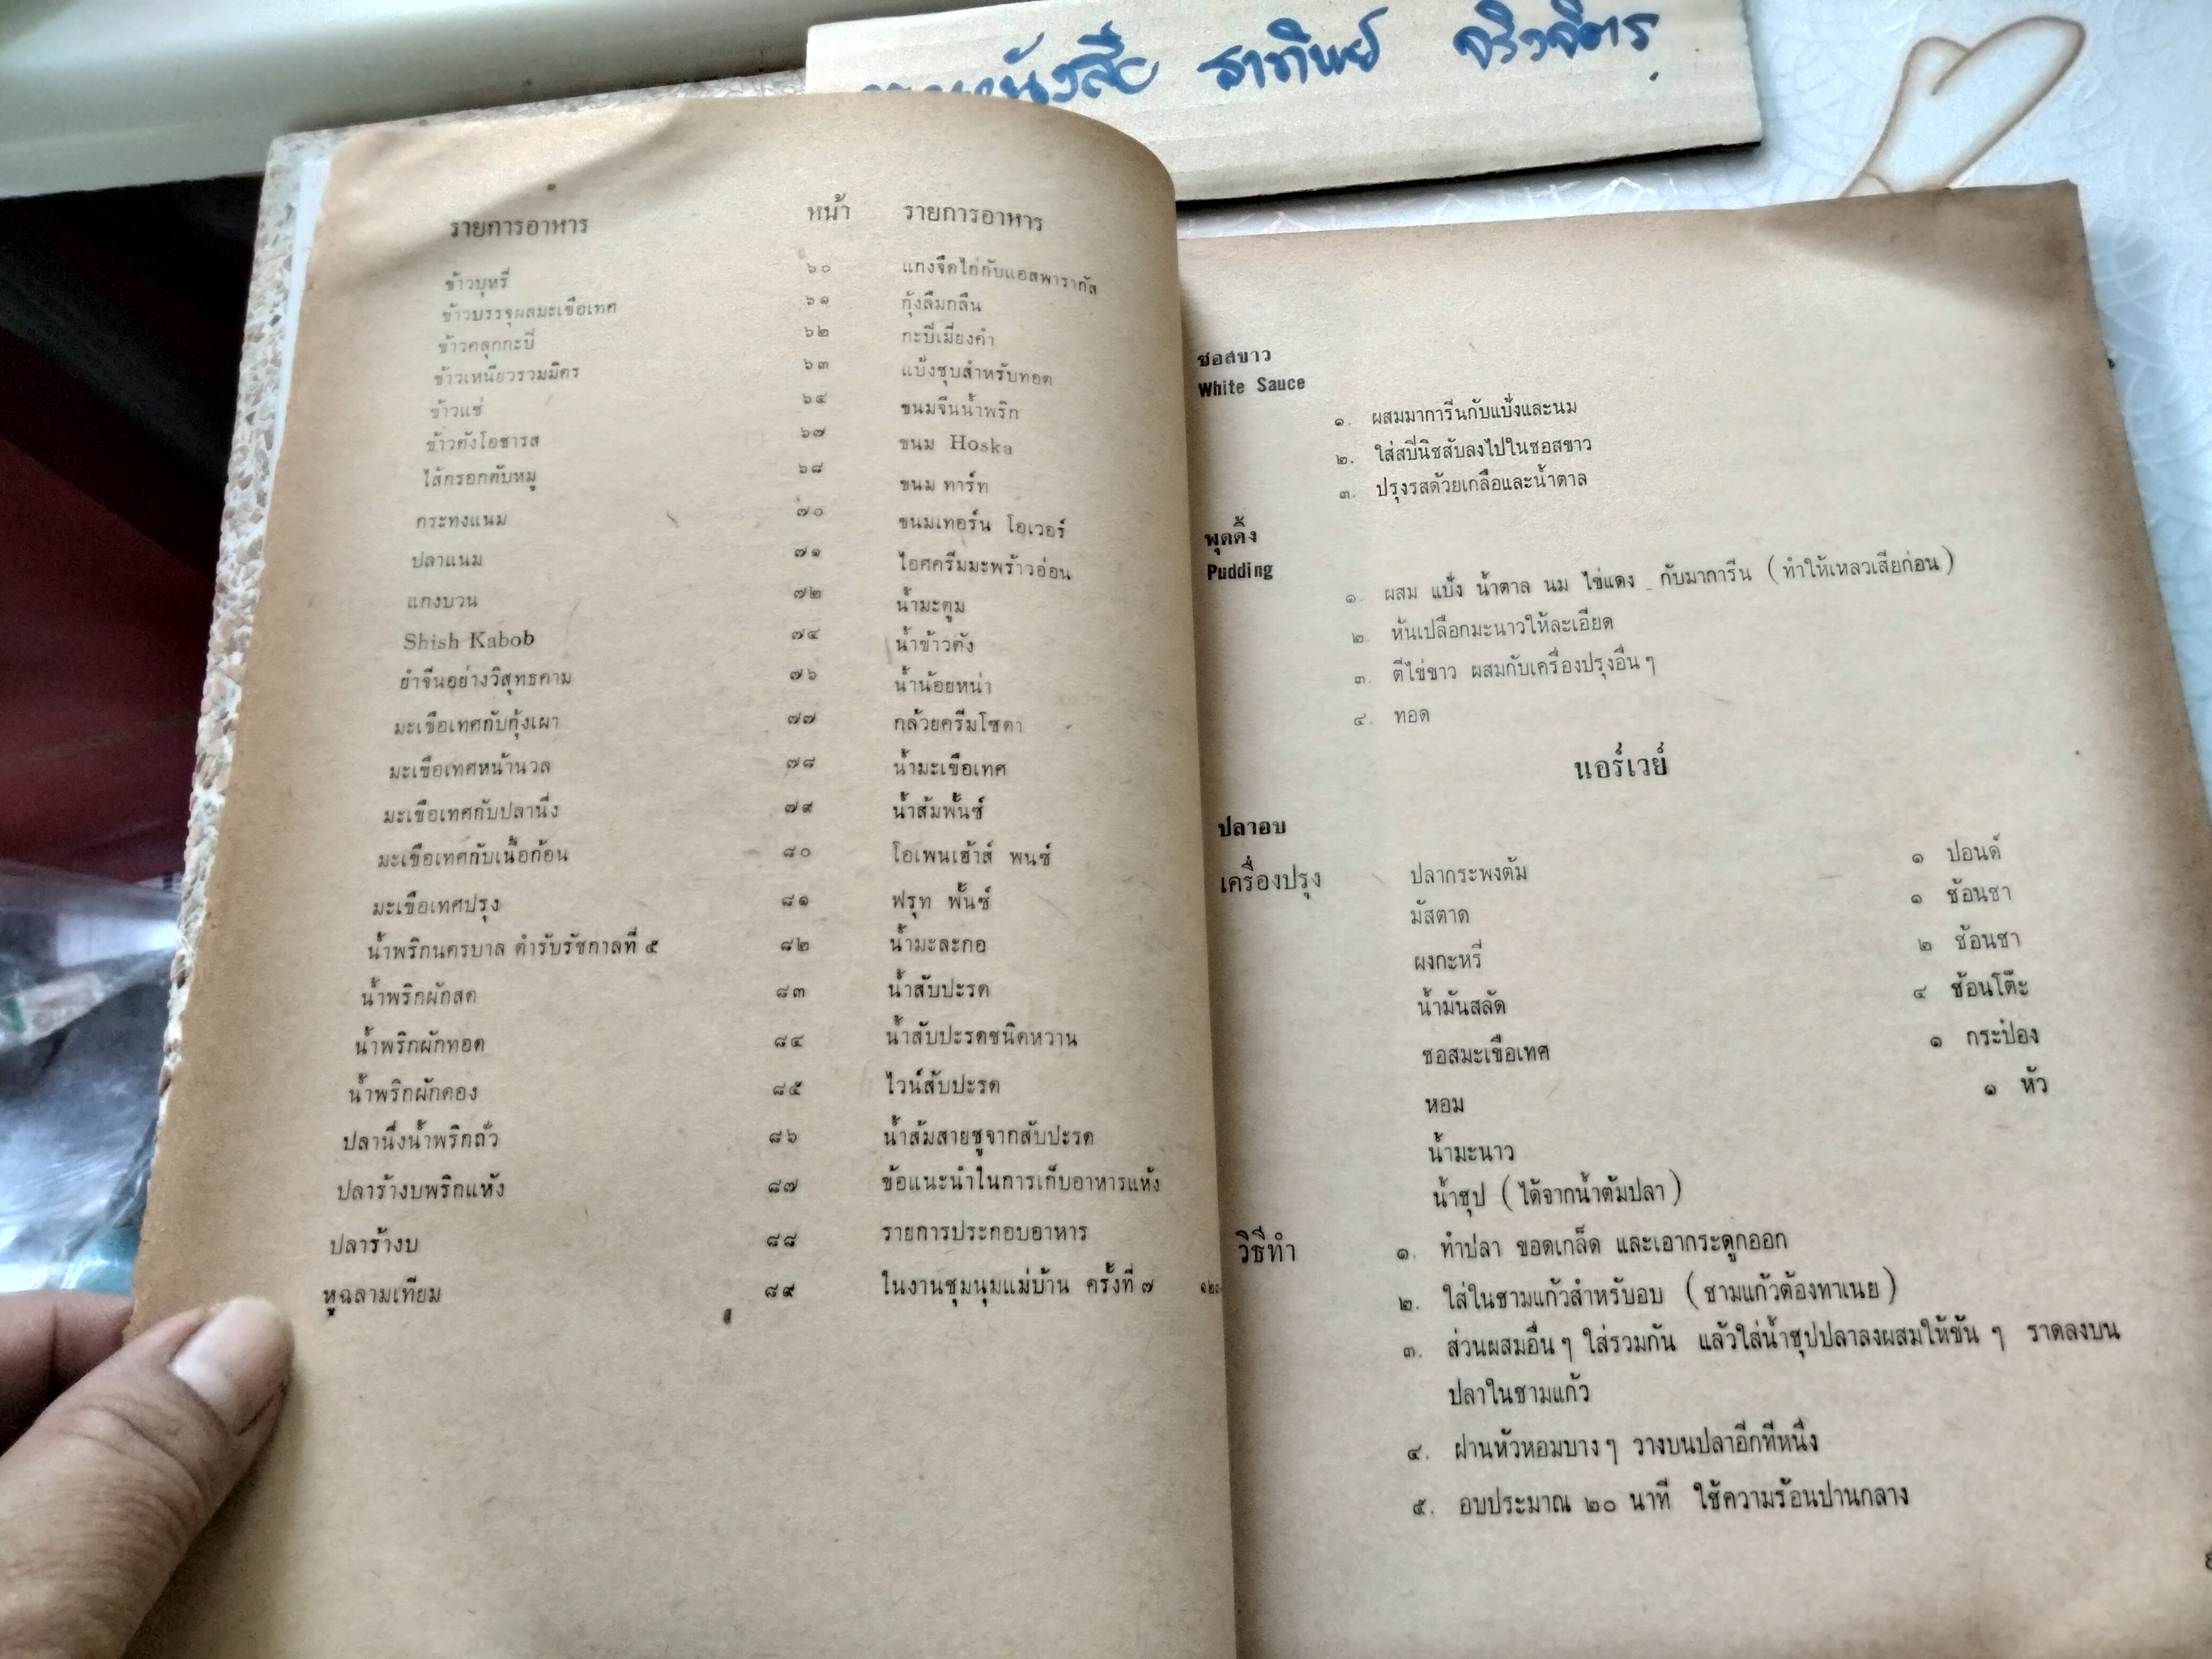 หนังสือ ธาทิพย์
รายการอาหาร หน้า รายการอาหาร
ข้าวบุหรี่ ๖๐ แกงจืดไก่กับแอสพารากัส
ข้าวบรรจุผลมะเขือเทศ ๖๑ กุ้งลืมกลืน
ข้าวคลุกกะปี ๖๒ กะปีเมี่ยงคำ
ข้าวเหนียวรวมมิตร ๖๓ แป้งชุบสำหรับทอด
ข้าวแช่ ๖๔ ขนมจีนน้ำพริก
ข้าวตังโอชารส ๖๗ ขนม Hoska
ไส้กรอกตับหมู ๖๘ ขนม ทาร์ท
กระทงแนม ๗๐ ขนมเทอร์น โอเวอร์
ปลาแนม ๗๑ ไอศครีมมะพร้าวอ่อน
แกงบวน ๗๒ น้ำมะตูม
Shish Kabob ๗๔ น้ำข้าวตัง
ยำจีนอย่างวิสุทธคาม ๗๖ น้ำน้อยหน่า
มะเขือเทศกับกุ้งเผา ๗๗ กล้วยครีมโซดา
มะเขือเทศหน้านวล ๗๘ น้ำมะเขือเทศ
มะเขือเทศกับปลานึ่ง ๗๙ น้ำส้มพั้นซ์
มะเขือเทศกับเนื้อก้อน ๘๐ โอเพนเฮ้าส์ พนซ์
มะเขือเทศปรุง ๘๑ ฟรุท พั้นซ์
น้ำพริกนครบาล ตำรับรัชกาลที่ ๕ ๘๒ น้ำมะละกอ
น้ำพริกผักสด ๘๓ น้ำสับปะรด
น้ำพริกผักทอด ๘๔ น้ำสับปะรดชนิดหวาน
น้ำพริกผักดอง ๘๕ ไวน์สับปะรด
ปลานึ่งน้ำพริกถั่ว ๘๖ น้ำส้มสายชูจากสับปะรด
ปลาร้างบพริกแห้ง ๘๗ ข้อแนะนำในการเก็บอาหารแห้ง
ปลาร้างบ ๘๘ รายการประกอบอาหาร
หูฉลามเทียม ๘๙ ในงานชุมนุมแม่บ้าน ครั้งที่ ๗
ซอสขาว
White Sauce
๑. ผสมมาการีนกับแป้งและนม
๒. ใส่สปีนิชสับลงไปในซอสขาว
๓. ปรุงรสด้วยเกลือและน้ำตาล
พุดดิ้ง
Pudding
๑. ผสม แป้ง น้ำตาล นม ไข่แดง กับมาการีน (ทำให้เหลวเสียก่อน)
๒. หั่นเปลือกมะนาวให้ละเอียด
๓. ตีไข่ขาว ผสมกับเครื่องปรุงอื่น ๆ
๔. ทอด
นอร์เวย์
ปลาอบ
เครื่องปรุง ปลากระพงต้ม ๑ ปอนด์
มัสตาด ๑ ช้อนชา
ผงกะหรี่ ๒ ช้อนชา
น้ำมันสลัด ๔ ช้อนโต๊ะ
ซอสมะเขือเทศ ๑ กระป๋อง
หอม ๑ หัว
น้ำมะนาว
น้ำซุป (ได้จากน้ำต้มปลา)
วิธีทำ ๑. ทำปลา ขอดเกล็ด และเอากระดูกออก
๒. ใส่ในชามแก้วสำหรับอบ (ชามแก้วต้องทาเนย)
๓. ส่วนผสมอื่น ๆ ใส่รวมกัน แล้วใส่น้ำซุปปลาลงผสมให้ข้น ๆ ราดลงบน
ปลาในชามแก้ว
๔. ฝานหัวหอมบาง ๆ วางบนปลาอีกทีหนึ่ง
๕. อบประมาณ ๒๐ นาที ใช้ความร้อนปานกลาง